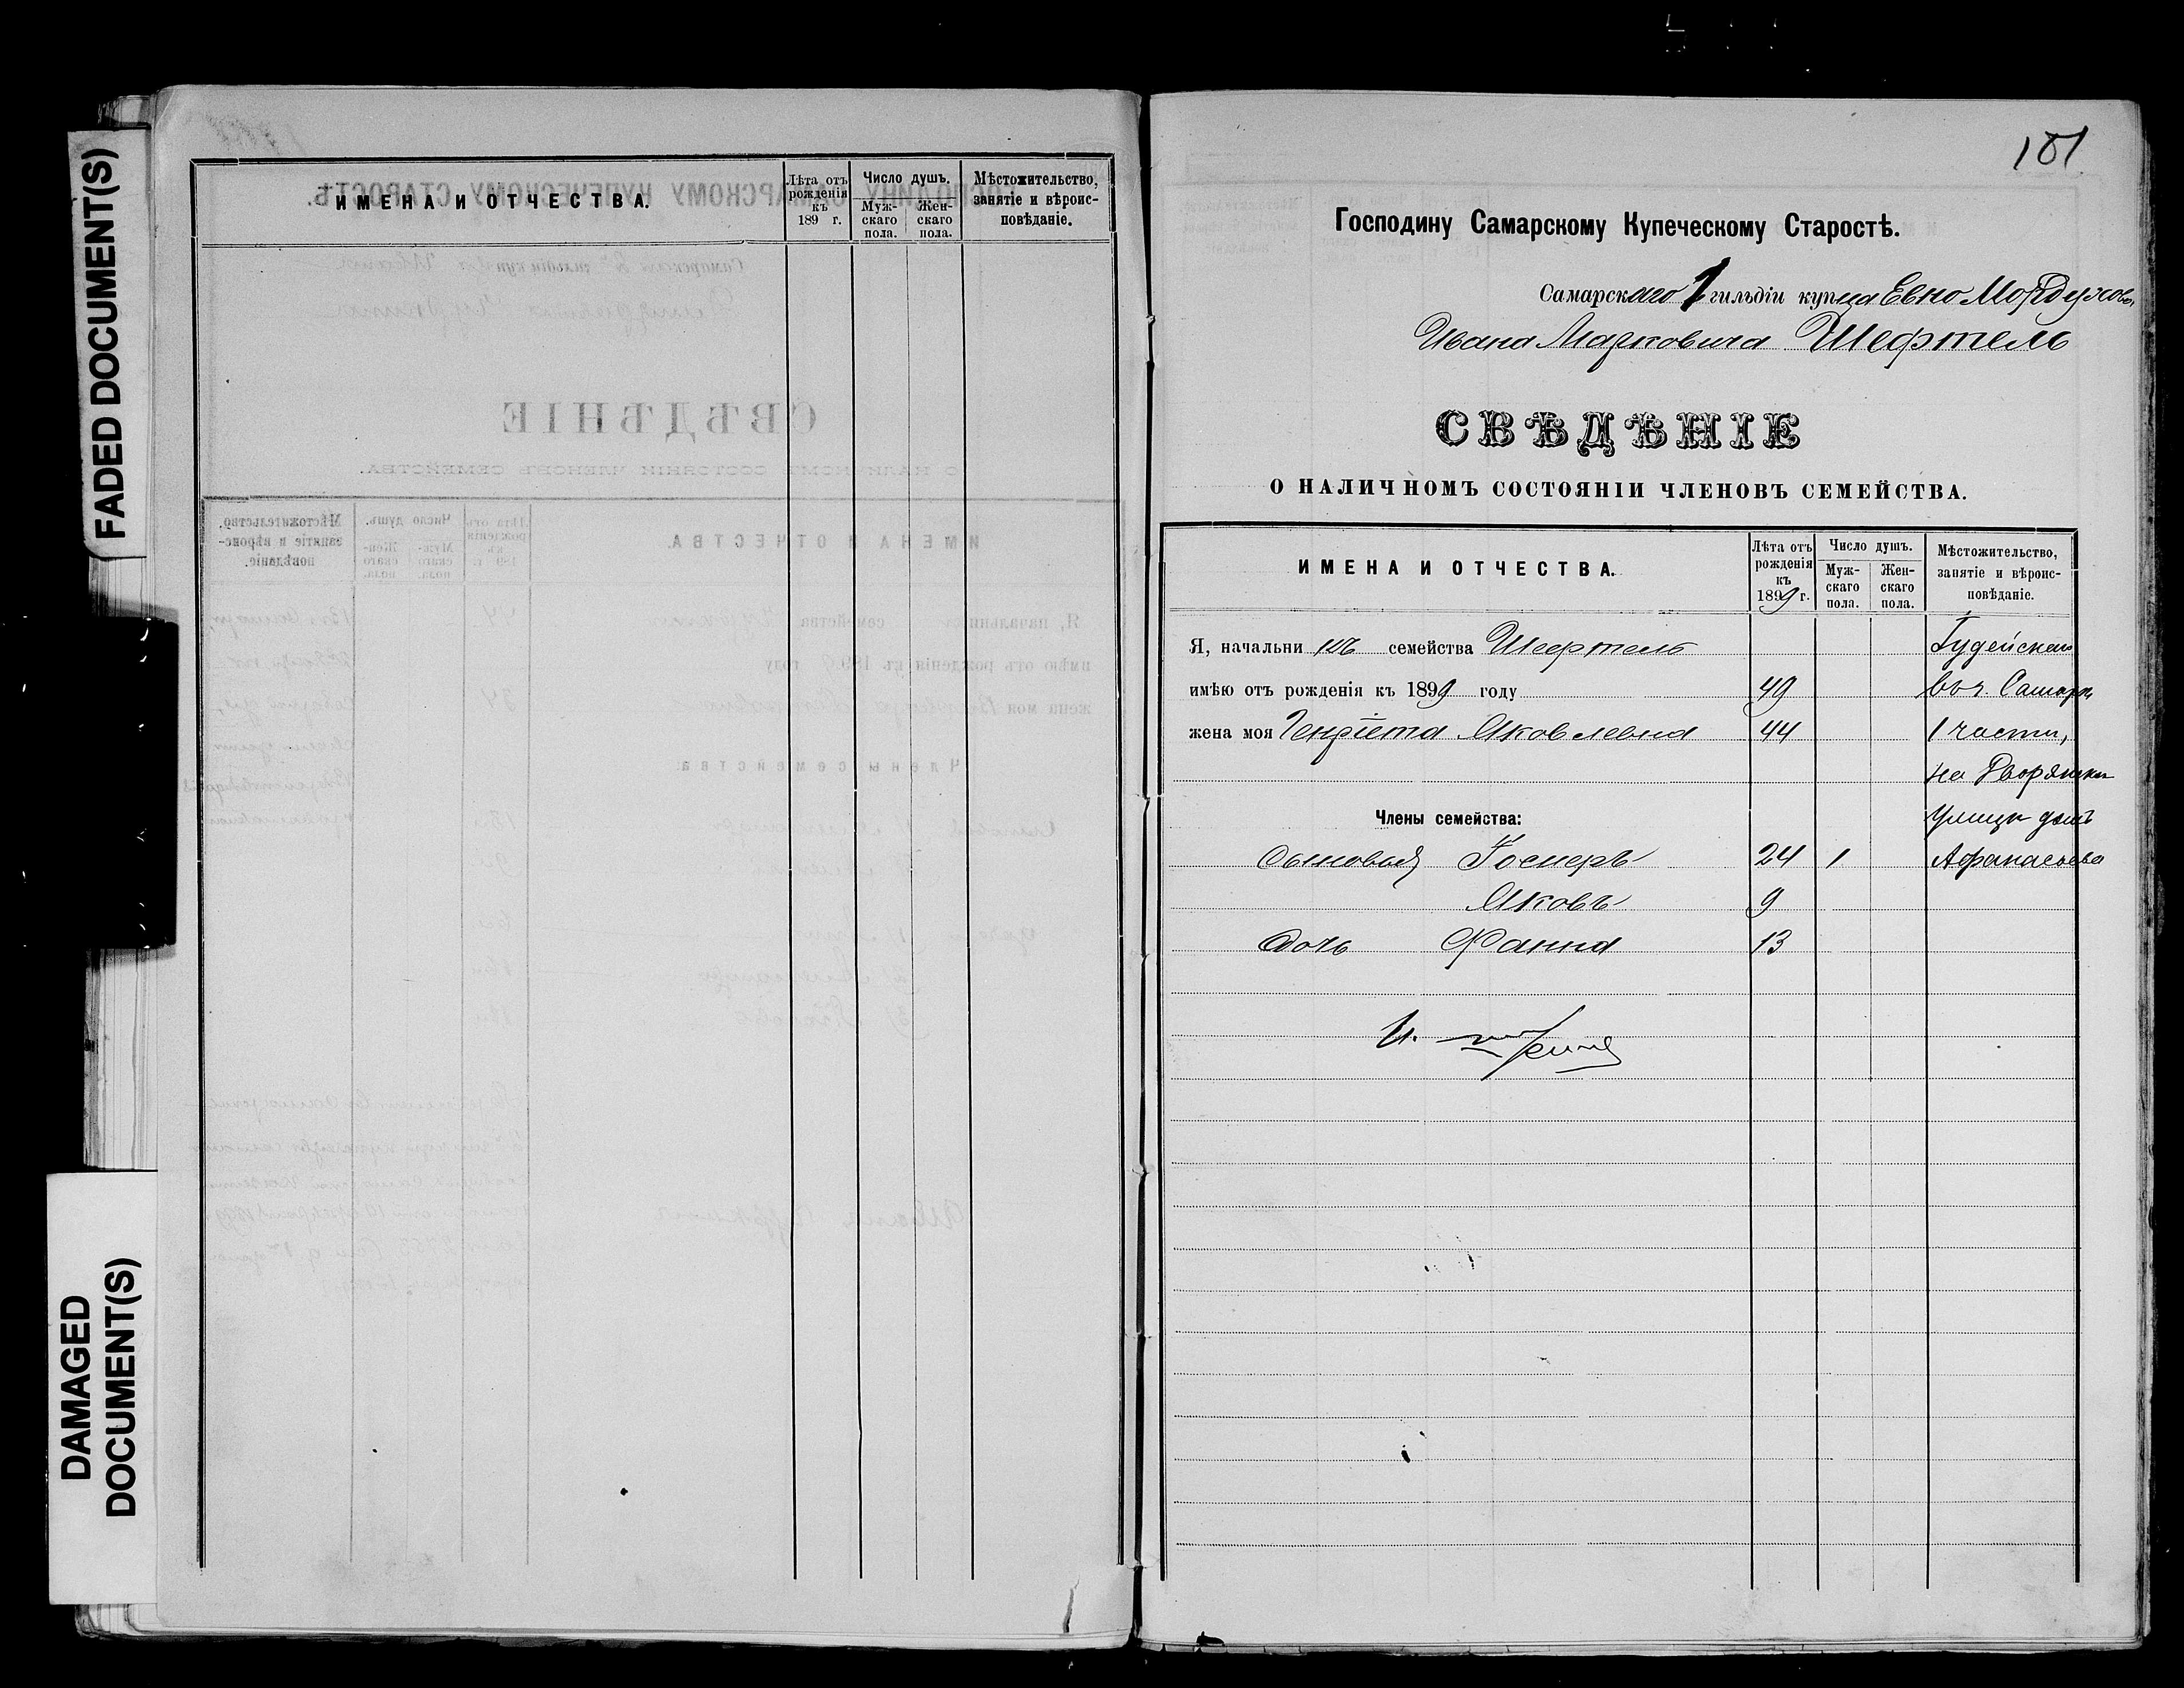 FADED DOCUMENT(S)
DAMAGED
DOCUMENT(S)
ИМЕНА И ОТЧЕСТВА.
Лѣта отъ рожденія къ 189 г.
Число душъ.
Мужскаго пола.
Женскаго пола.
Мѣстожительство, занятіе и вѣроисповѣданіе.
101
Господину Самарскому Купеческому Старостѣ.
Самарскаго 1 гильдіи купца Евно Мордухов.
Ивана Марковича Шефтель
СВѢДѢНІЕ
О НАЛИЧНОМЪ СОСТОЯНІИ ЧЛЕНОВЪ СЕМЕЙСТВА.
ИМЕНА И ОТЧЕСТВА.
Лѣта отъ рожденія къ 1899 г.
Число душъ.
Муж-скаго пола.
Жен-скаго пола.
Мѣстожительство, занятіе и вѣроис-повѣданіе.
Я, начальникъ семейства Шефтель Іудейскаго
имѣю отъ рожденія къ 1899 году 49 въ г. Самарѣ,
жена моя Генріета Яковлевна 44 1 части,
на Дворянск
Члены семейства: Улицѣ домъ
Сыновья Іосифъ 24 1 Афанасьева
Яковъ 9
Дочь Фанна 13
И.